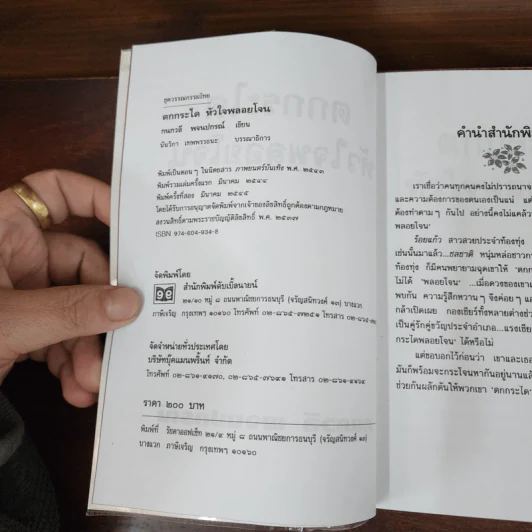 ชุดวรรณกรรมไทย
ตกกระได หัวใจพลอยโจน
กนกวลี พจนปกรณ์ เขียน
นันวิภา เทพพรรธนะ บรรณาธิการ
พิมพ์เป็นตอน ๆ ในนิตยสาร ภาพยนตร์บันเทิง พ.ศ. ๒๕๔๓
พิมพ์รวมเล่มครั้งแรก มีนาคม ๒๕๔๔
พิมพ์ครั้งที่สอง มีนาคม ๒๕๔๕
โดยได้รับการอนุญาตจัดพิมพ์จากเจ้าของลิขสิทธิ์ถูกต้องตามกฎหมาย
สงวนสิทธิ์ตามพระราชบัญญัติลิขสิทธิ์ พ.ศ. ๒๕๓๗
ISBN 974-604-934-8
จัดพิมพ์โดย
๑๑ สำนักพิมพ์ดับเบิ้ลนายน์
๒๑/๑๐ หมู่ ๘ ถนนพาณิชยการธนบุรี (จรัญสนิทวงศ์ ๑๓) บางแวก
ภาษีเจริญ กรุงเทพฯ ๑๐๑๖๐ โทรศัพท์ ๐๒-๘๖๕-๗๒๕๑ โทรสาร
จัดจำหน่ายทั่วประเทศโดย
บริษัทบุ๊คแมนพริ้นท์ จำกัด
โทรศัพท์ ๐๒-๘๖๑-๔๑๗๐, ๐๒-๘๖๕-๗๖๕๑ โทรสาร
ราคา ๒๐๐ บาท
พิมพ์ที่ รัชดาออฟเซ็ท ๒๑/๙ หมู่ ๘ ถนนพาณิชยการธนบุรี (จรัญสนิทวงศ์ ๑๓)
บางแวก ภาษีเจริญ กรุงเทพฯ ๑๐๑๖๐
คำนำสำนักพิ
เราเชื่อว่าคนทุกคนคงไม่ปรารถนาจ
และความต้องการของตนเองเป็นแน่ แต่
ต้องทำตาม ๆ กันไป อย่างนี้คงไม่แคล้ว
พลอยโจน'
ร้อยแก้ว สาวสวยประจำท้องทุ่ง
เช่นนั้นมาแล้ว...ชลชาติ หนุ่มหล่อชาวก
ท้องทุ่ง ก็มีคนพยายามฉุดเขาให้ 'ตก
ไม่ได้ 'พลอยโจน' ...เมื่อดวงของเขา
พบกัน ความรู้สึกหวาน ๆ จึงค่อย ๆ
กล้าเปิดเผย กองเชียร์ทั้งหลายต่างช่ว
เป็นคู่รักคู่ขวัญประจำอำเภอ...แรงเชีย
กระไดพลอยโจน' ได้หรือไม่
แต่ขอบอกไว้ก่อนว่า เขาและเธอ
มันก็พร้อมจะกระโจนหากันอยู่นานแล้
ช่วยกันผลักดันให้พวกเขา 'ตกกระได